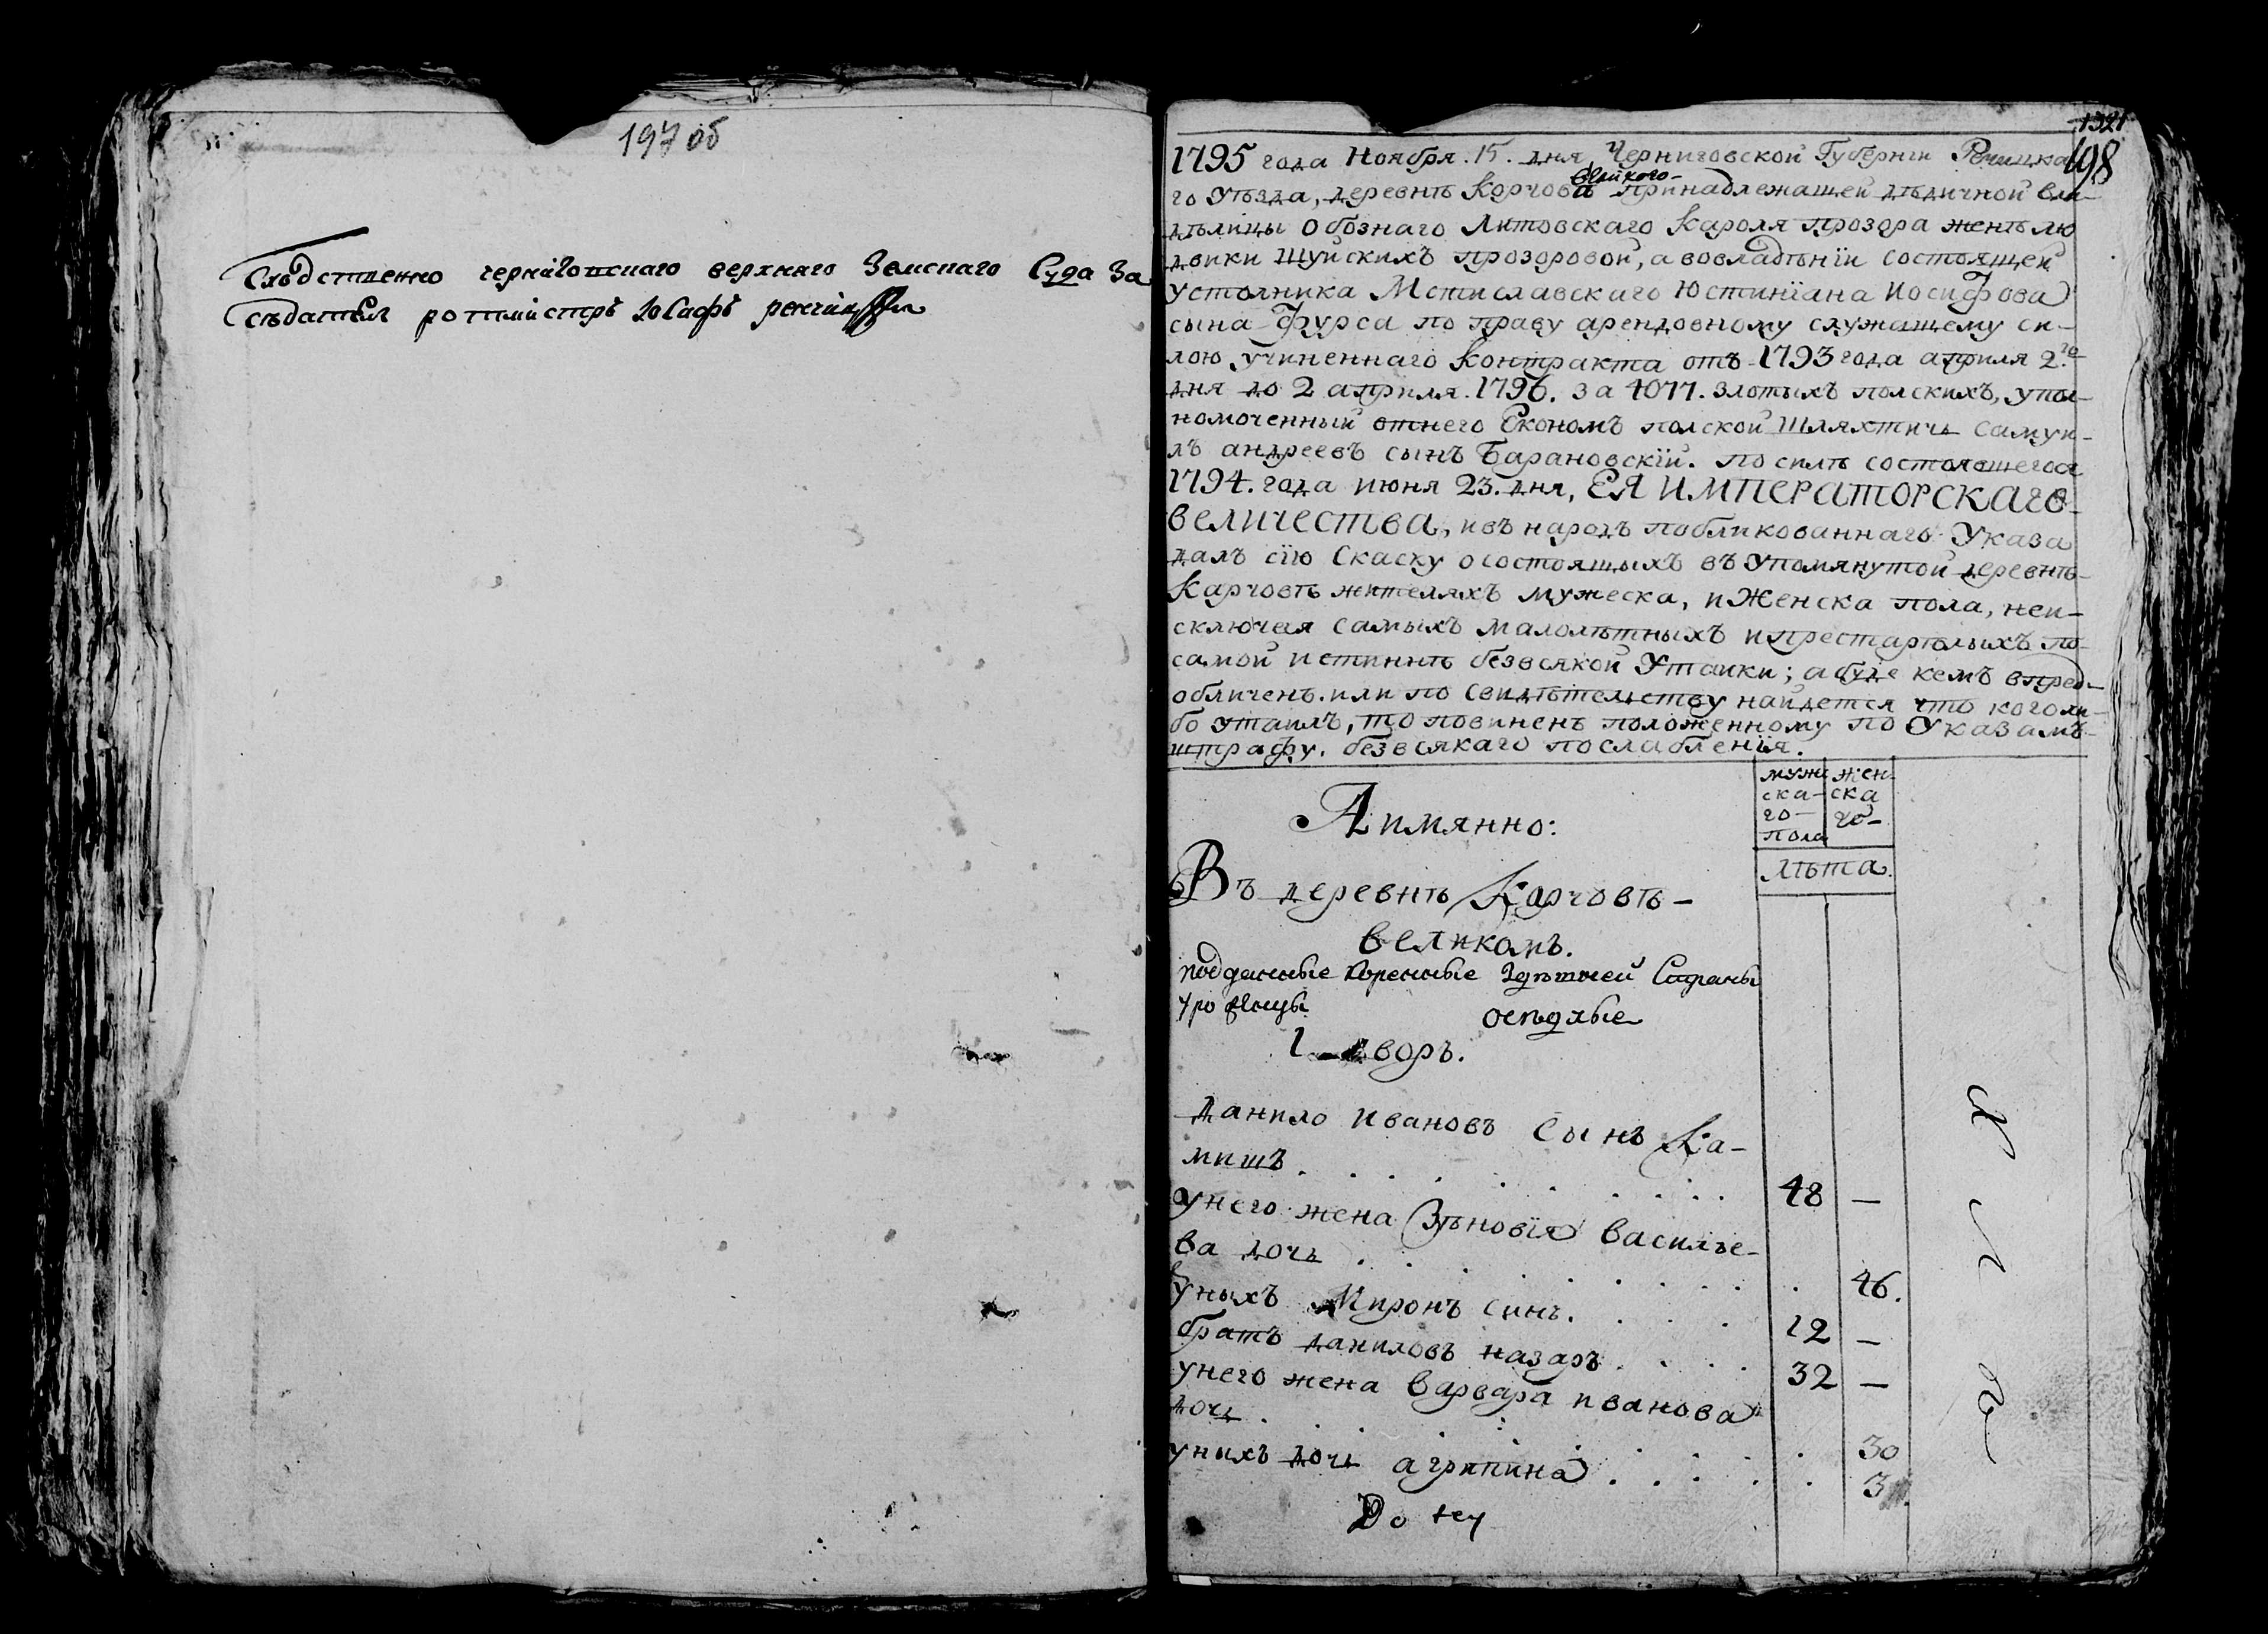 197 об
Следственно чернiговскаго верхняго Земскаго Суда За
седатель ротмистръ
1321
198
1795 года Ноября. 15. дня, Черниговской Губернiи Речицка
го уѣзда, деревнѣ Корчова великого принадлежащей дѣдичной вла-
дѣлицы Обознаго Литовскаго Кароля прозора женѣ лю
двики Шуйскихъ прозоровой, а вовладѣнїи состоящей
у столника Мстиславскаго Юстинїана Иосифова
сына Фурса по праву арендовному служащему си-
лою учиненнаго Контракта отъ 1793 года априля 2го
дня до 2 априля. 1796. за 4077. злотыхъ полскихъ, упол-
номоченный отнего Економъ полской шляхтичь Самуи-
лъ андреевъ сынъ Барановскїй. по силѣ состоявшегося
1794. года июня 23. дня, ЕЯ ИМПЕРАТОРСКАГО
ВЕЛИЧЕСТВА, ивъ народъ побликованнаго Указа
далъ сїю Скаску о состоящыхъ въ упомянутой деревнѣ
Карчовѣ жителяхъ мужеска, и Женска пола, неи-
сключая самыхъ малолѣтныхъ и престарѣлыхъ по
самой истиннѣ безвсякой Утайки; а буде кемъ впред-
обличенъ. или по свидѣтельству найдется что коголи-
бо утаилъ, то повиненъ положенному по Указамъ
штрафу. безвсякаго послабленїя.
муже жен
ска- ска
го- го-
пола
Аимянно:
лѣта.
Въ деревнѣ Карчовѣ-
великомъ.
подданные Коренные Здѣшней Страны
уроженцы
оседлые
1 дворъ.
данило ивановъ сынъ Ка-
мишъ . . . . . . . . 48 —
унего жена Зѣновїя василье-
ва дочь . . . . . . . . 46.
уныхъ Миронъ синъ. . . . 12 —
братъ даниловъ назаръ . . . . 32 —
унего жена варвара иванова
дочь . . . . . . . . 30
уныхъ дочь агрипина . . . . . 3